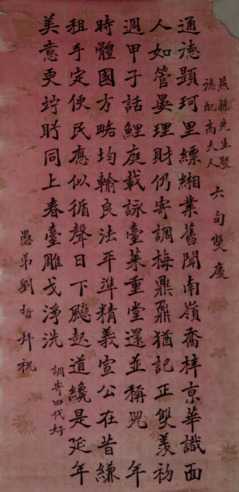 燕孫先生暨
德配高夫人 六旬雙慶
通德顯珂里縹緗業舊聞南嶺喬梓京華識面
人如管晏理財仍寄調梅鼎鼐猶記正雙羨初
週甲子話鯉庭載詠臺萊重堂還並稱兕 年
時體國方略均輸良法平準精義宣公在昔緣
租手定使民應似循聲日下飈起道纔是延年
美意更竚時同上春臺雕戈淨洗 調寄四代好
愚弟劉哲拜祝